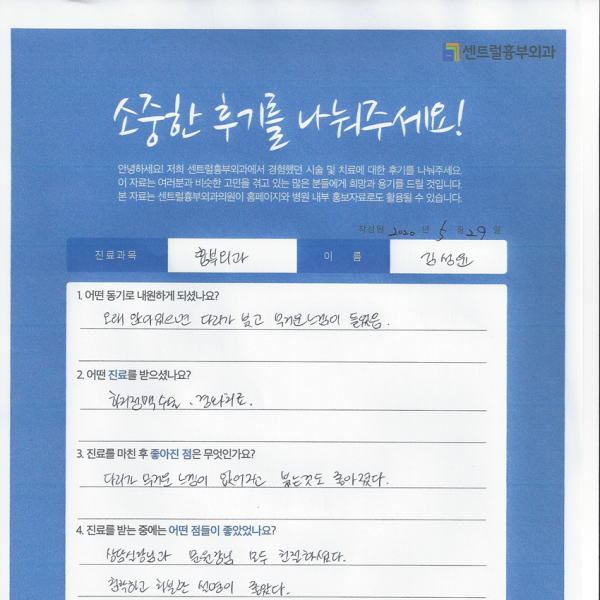 센트럴흉부외과
소중한 후기를 나눠주세요!
안녕하세요! 저희 센트럴흉부외과에서 경험했던 시술 및 치료에 대한 후기를 나눠주세요.
이 자료는 여러분과 비슷한 고민을 겪고 있는 많은 분들에게 희망과 용기를 드릴 것입니다.
본 자료는 센트럴흉부외과의원이 홈페이지와 병원 내부 홍보자료로도 활용될 수 있습니다.
작성일 2020 년 5 월 29 일
진료과목 흉부외과 이 름 김성윤
1. 어떤 동기로 내원하게 되셨나요?
오래 앉아있으면 다리가 붓고 무거운느낌이 들었음.
2. 어떤 진료를 받으셨나요?
하지정맥수술.
3. 진료를 마친 후 좋아진 점은 무엇인가요?
다리가 무거운 느낌이 없어지고 붓는것도 좋아졌다.
4. 진료를 받는 중에는 어떤 점들이 좋았었나요?
상담실장님과 모두 친절하셨다.
정확하고 설명이 좋았다.